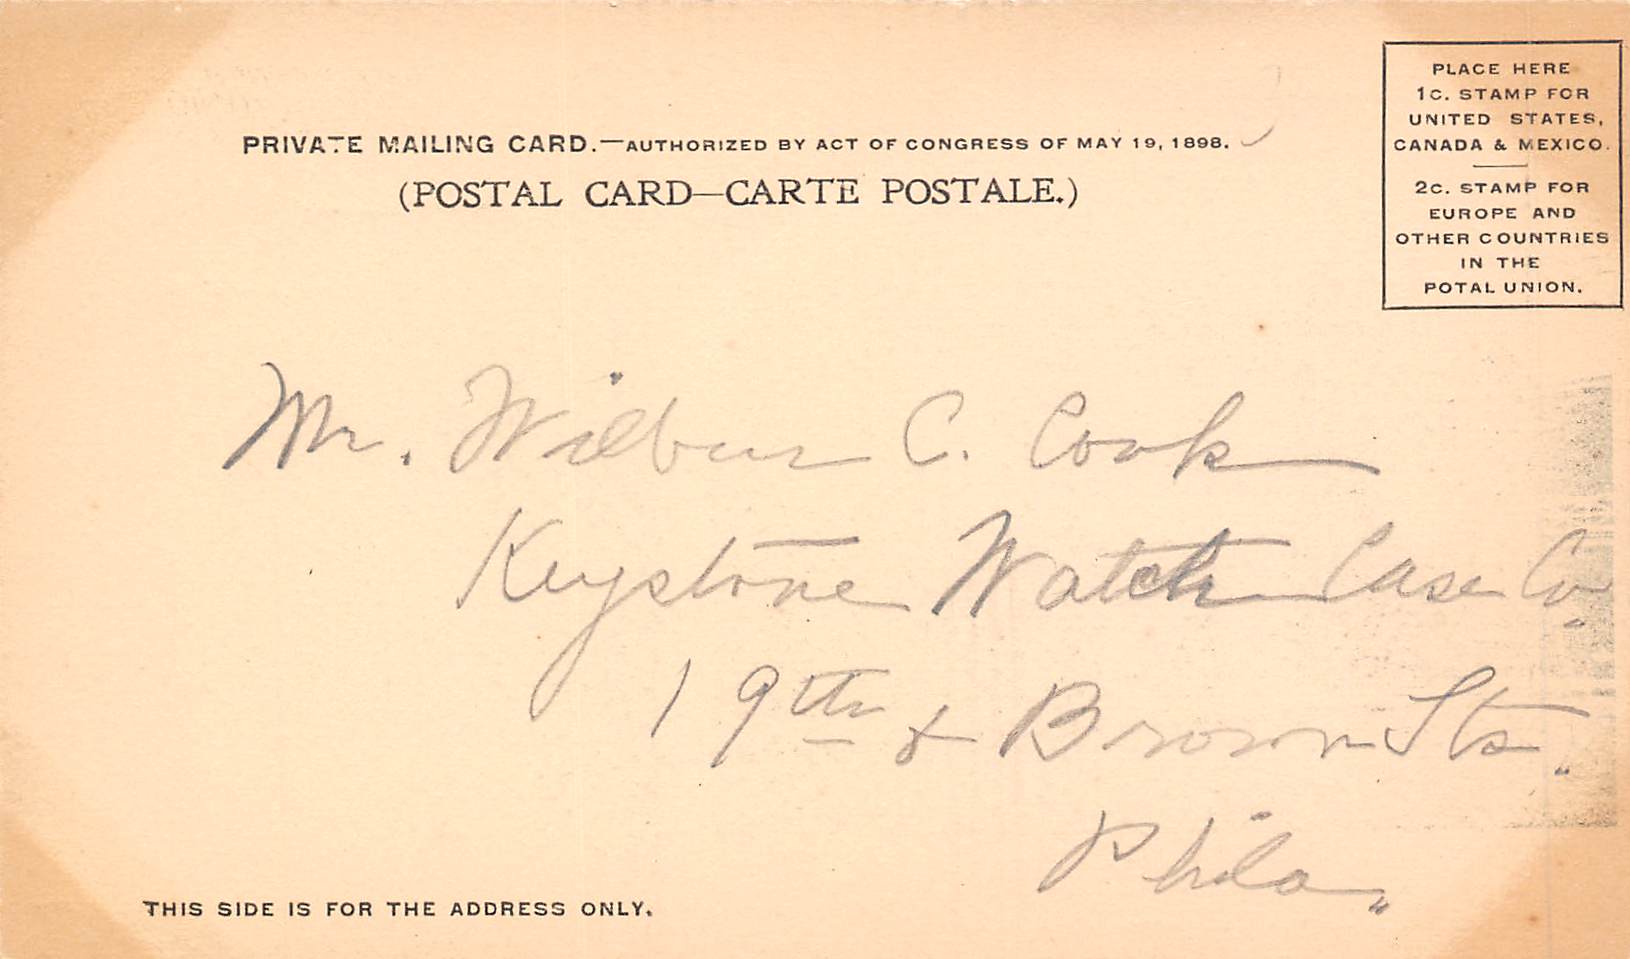 PRIVATE MAILING CARD.—AUTHORIZED BY ACT OF CONGRESS OF MAY 19, 1898.
(POSTAL CARD—CARTE POSTALE.)
PLACE HERE
1C. STAMP FOR
UNITED STATES,
CANADA & MEXICO.
2C. STAMP FOR
EUROPE AND
OTHER COUNTRIES
IN THE
POTAL UNION.
Mr. Wilbur C. Cook
Keystone Watch Case Co.
19th & Brown Sts.
Phila.
THIS SIDE IS FOR THE ADDRESS ONLY.